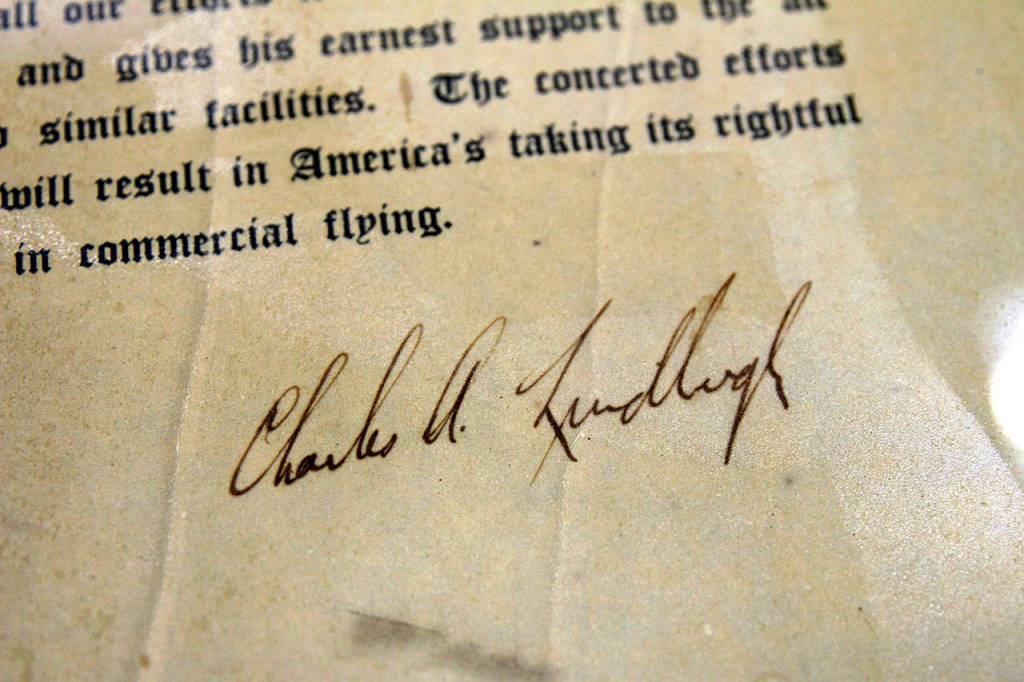 all our efforts
and gives his earnest support to the
similar facilities. The concerted efforts
will result in America's taking its rightful
in commercial flying.
Charles A. Lindbergh